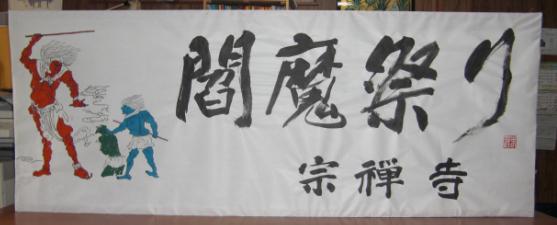 閻魔祭り
宗禅寺